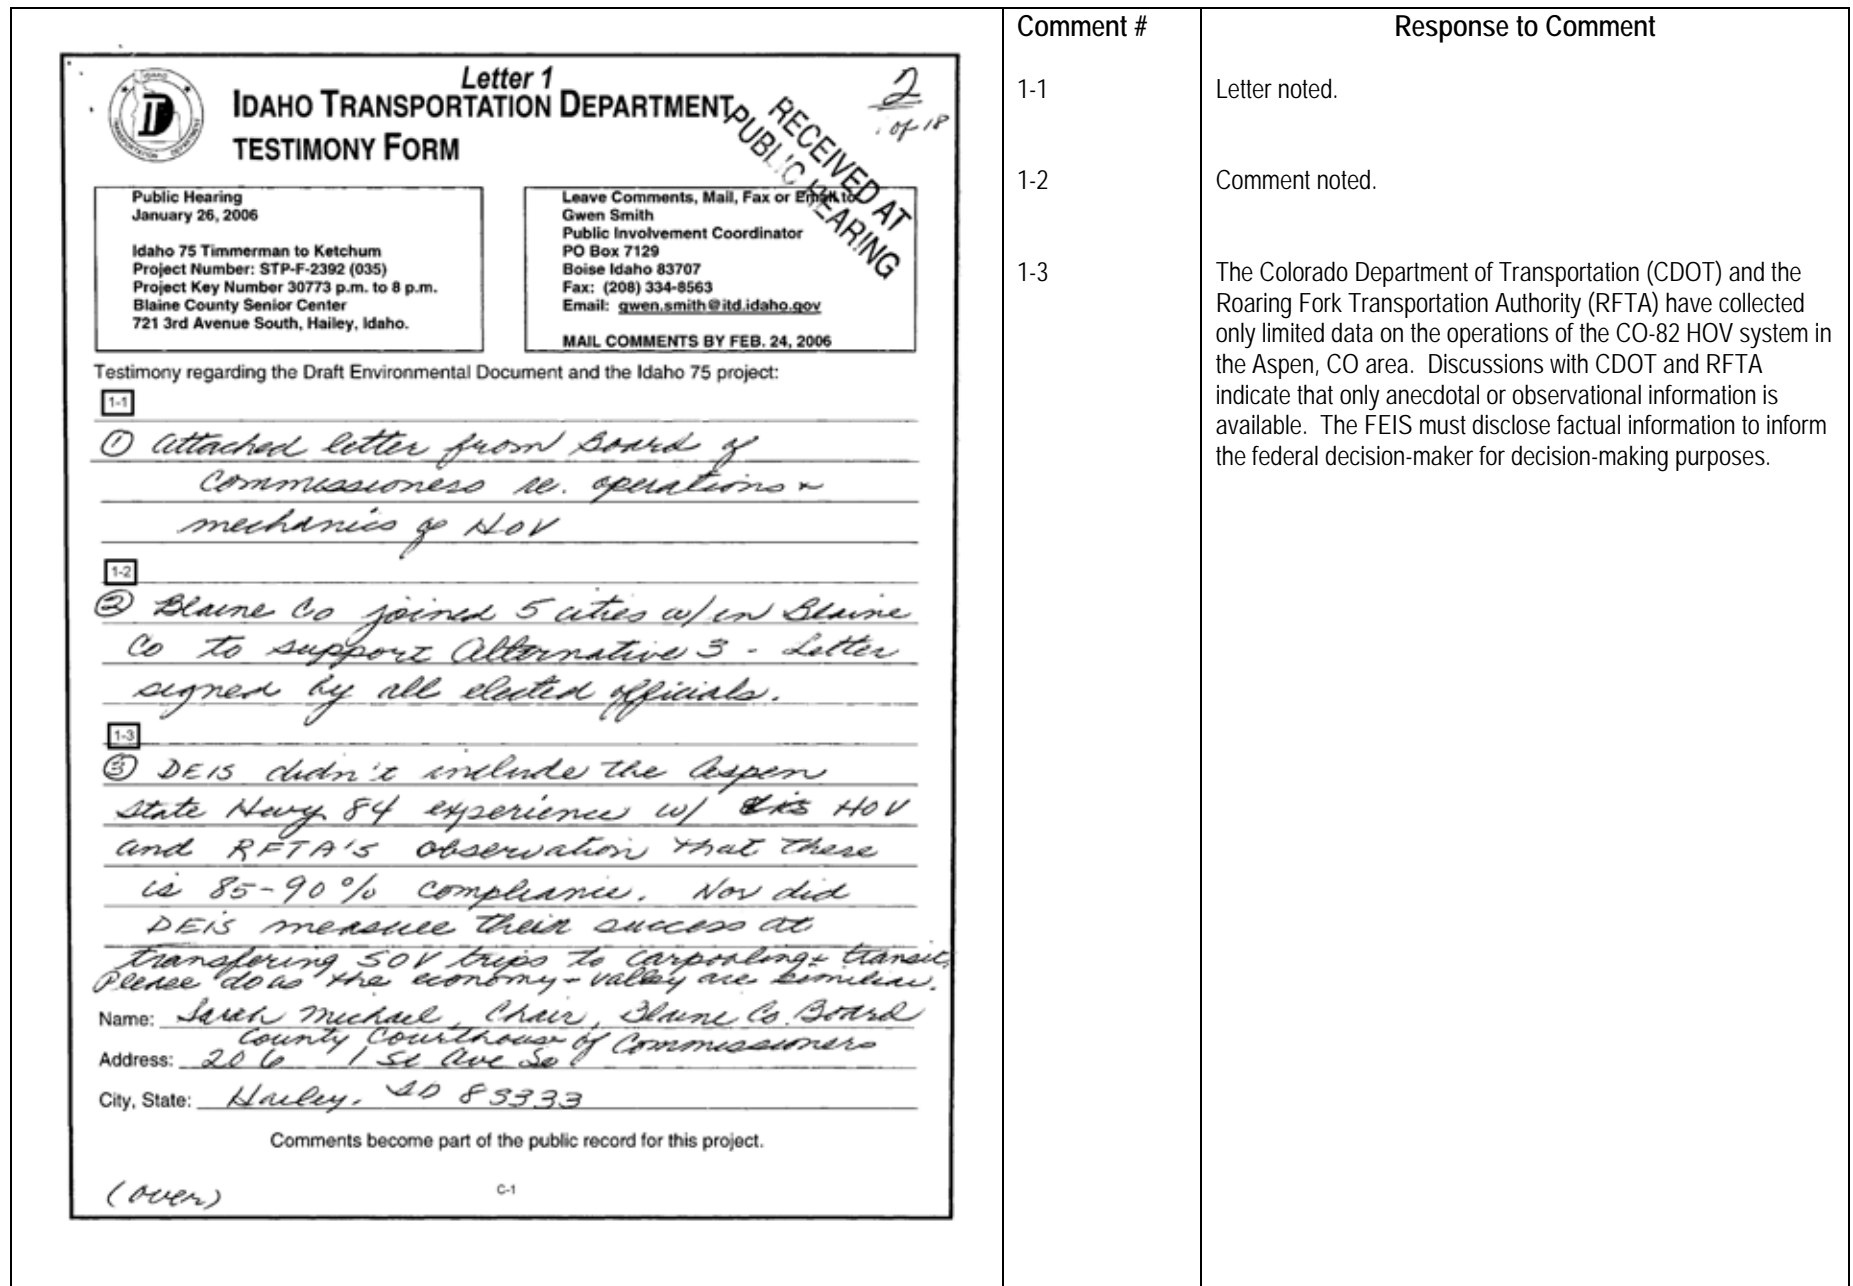 Comment #
Response to Comment
Letter 1
2
of 18
IDAHO TRANSPORTATION DEPARTMENT
TESTIMONY FORM
RECEIVED AT
PUBLIC HEARING
IDAHO
TRANSPORTATION DEPARTMENT
Public Hearing
January 26, 2006
Idaho 75 Timmerman to Ketchum
Project Number: STP-F-2392 (035)
Project Key Number 30773 p.m. to 8 p.m.
Blaine County Senior Center
721 3rd Avenue South, Hailey, Idaho.
Leave Comments, Mail, Fax or Email to
Gwen Smith
Public Involvement Coordinator
PO Box 7129
Boise Idaho 83707
Fax: (208) 334-8563
Email: gwen.smith@itd.idaho.gov
MAIL COMMENTS BY FEB. 24, 2006
Testimony regarding the Draft Environmental Document and the Idaho 75 project:
1-1
① Attached letter from Board of
Commissioners re. operations +
mechanics of HOV
1-2
② Blaine Co joined 5 cities w/in Blaine
Co to support Alternative 3 - Letter
signed by all elected officials.
1-3
③ DEIS didn't include the Aspen
State Hwy 84 experience w/ HOV
and RFTA's observation that there
is 85-90% compliance. Nor did
DEIS measure their success at
transfering SOV trips to carpooling + transit.
Please do as the economy + valley are similiar.
Name: Sarah Michael, Chair, Blaine Co. Board
of Commissioners
County Courthouse
Address: 206 1st Ave So
City, State: Hailey, ID 83333
Comments become part of the public record for this project.
(over)
C-1
1-1
Letter noted.
1-2
Comment noted.
1-3
The Colorado Department of Transportation (CDOT) and the
Roaring Fork Transportation Authority (RFTA) have collected
only limited data on the operations of the CO-82 HOV system in
the Aspen, CO area. Discussions with CDOT and RFTA
indicate that only anecdotal or observational information is
available. The FEIS must disclose factual information to inform
the federal decision-maker for decision-making purposes.